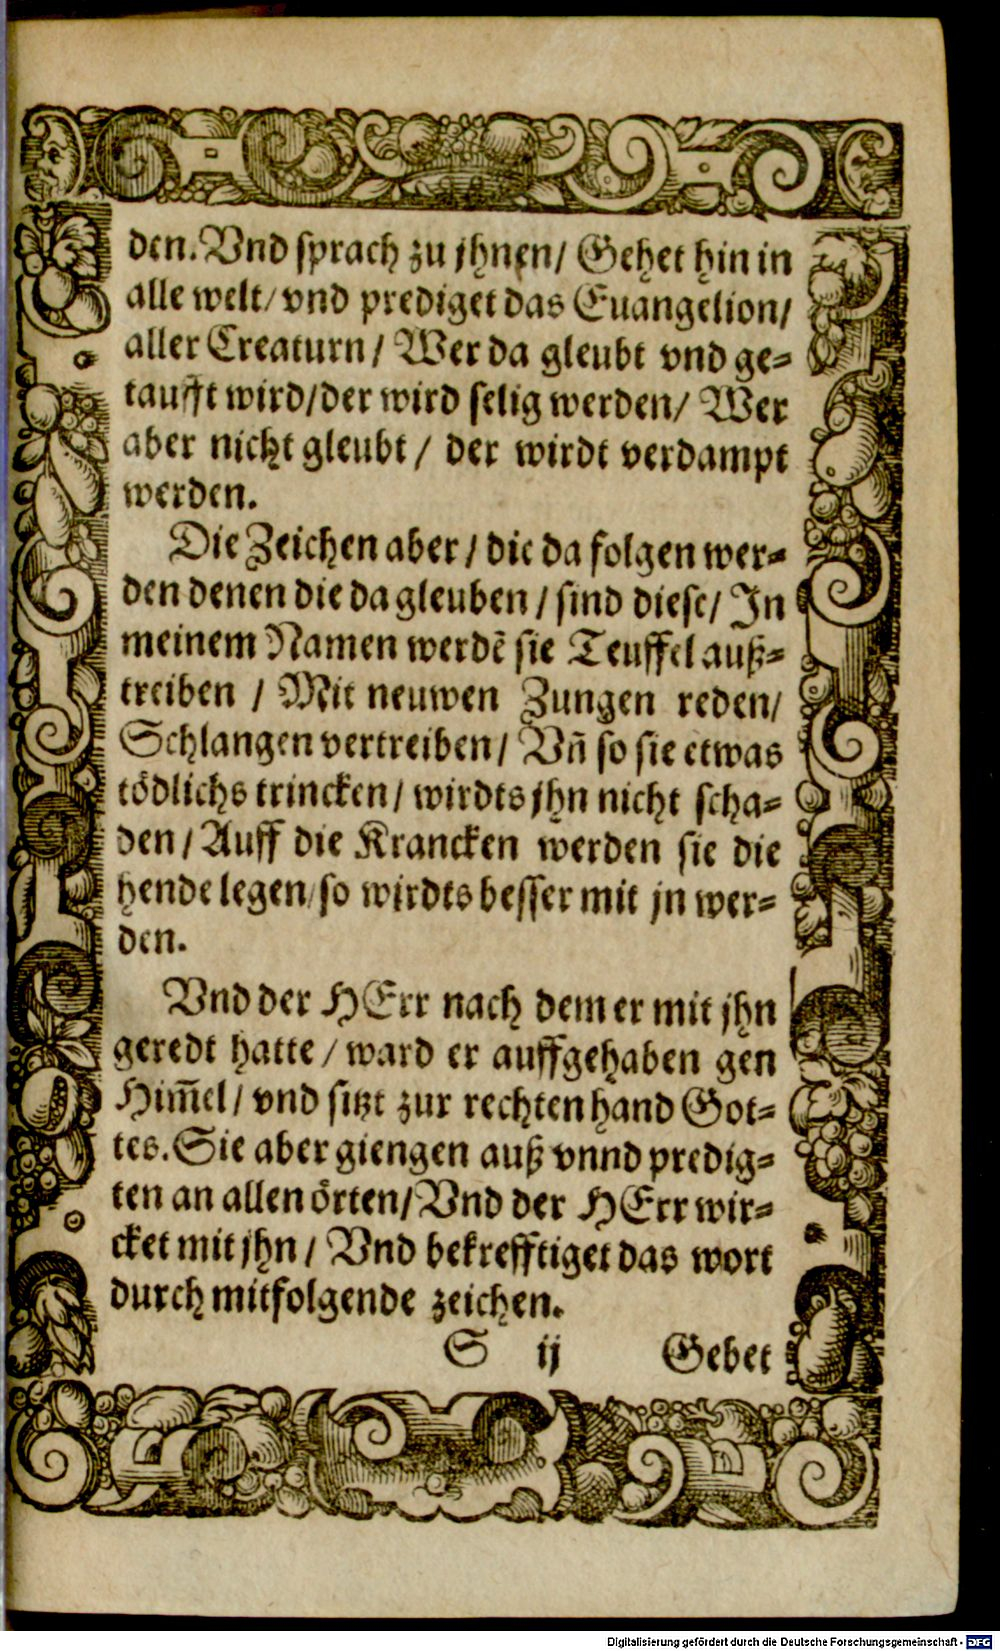 den. Vnd sprach zu jhnen/ Gehet hin in
alle welt/ vnd prediget das Euangelion/
aller Creaturn/ Wer da gleubt vnd ge⸗
taufft wird/der wird selig werden/ Wer
aber nicht gleubt/ der wirdt verdampt
werden.
Die Zeichen aber/ die da folgen wer⸗
den denen die da gleuben/ sind diese/ In
meinem Namen werdẽ sie Teuffel auß⸗
treiben/ Mit neuwen Zungen reden/
Schlangen vertreiben/ Vñ so sie etwas
tödlichs trincken/ wirdts jhn nicht scha⸗
den/ Auff die Krancken werden sie die
hende legen/ so wirdts besser mit jn wer⸗
den.
Vnd der HErr nach dem er mit jhn
geredt hatte/ ward er auffgehaben gen
Him̃el/ vnd sitzt zur rechten hand Got⸗
tes. Sie aber giengen auß vnnd predig⸗
ten an allen örten/ Vnd der HErr wir⸗
cket mit jhn/ Vnd bekrefftiget das wort
durch mitfolgende zeichen.
S ij Gebet
Digitalisierung gefördert durch die Deutsche Forschungsgemeinschaft - DFG